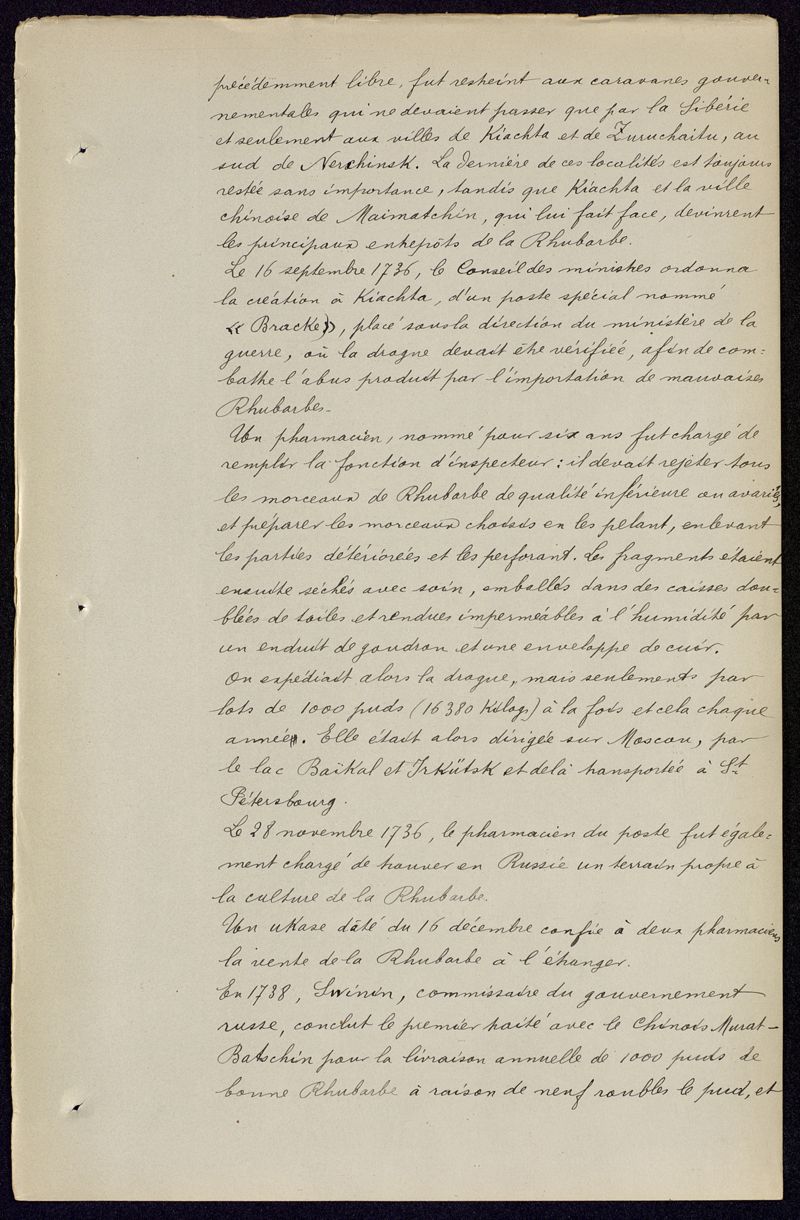 précédemment libre, fut restreint aux caravanes gouver-
nementales qui ne devaient passer que par la Sibérie
et seulement aux villes de Kiachta et de Zuruchaitu, au
sud de Nerchinsk. La dernière de ces localités est toujours
restée sans importance, tandis que Kiachta et la ville
chinoise de Maimatchin, qui lui fait face, devinrent
les principaux entrepôts de la Rhubarbe.
Le 16 septembre 1736, le Conseil des ministres ordonna
la création à Kiachta, d'un poste spécial nommé
« Bracke », placé sous la direction du ministère de la
guerre, où la drogue devait être vérifiée, afin de com=
battre l'abus produit par l'importation de mauvaises
Rhubarbes-
Un pharmacien, nommé pour six ans fut chargé de
remplir la fonction d'inspecteur : il devait rejeter tous
les morceaux de Rhubarbe de qualité inférieure ou avariés,
et préparer les morceaux choisis en les pelant, enlevant
les parties détériorées et les perforant. Les fragments étaient
ensuite séchés avec soin, emballés dans des caisses dou=
blées de toiles et rendues imperméables à l'humidité par
un enduit de goudron et une enveloppe de cuir.
On expédiait alors la drogue, mais seulements par
lots de 1000 puds (16380 Kilogs) à la fois et cela chaque
année. Elle était alors dirigée sur Moscou, par
le lac Baïkal et Irkütsk et delà transportée à St.
Pétersbourg.
Le 28 novembre 1736, le pharmacien du poste fut égale=
ment chargé de trouver en Russie un terrain propre à
la culture de la Rhubarbe.
Un ukase dâté du 16 décembre confie à deux pharmaciens
la vente de la Rhubarbe à l'étranger.
En 1738, Swinin, commissaire du gouvernement
russe, conclut le premier traité avec le Chinois Murat-
Batschin pour la livraison annuelle de 1000 puds de
bonne Rhubarbe à raison de neuf roubles le pud, et